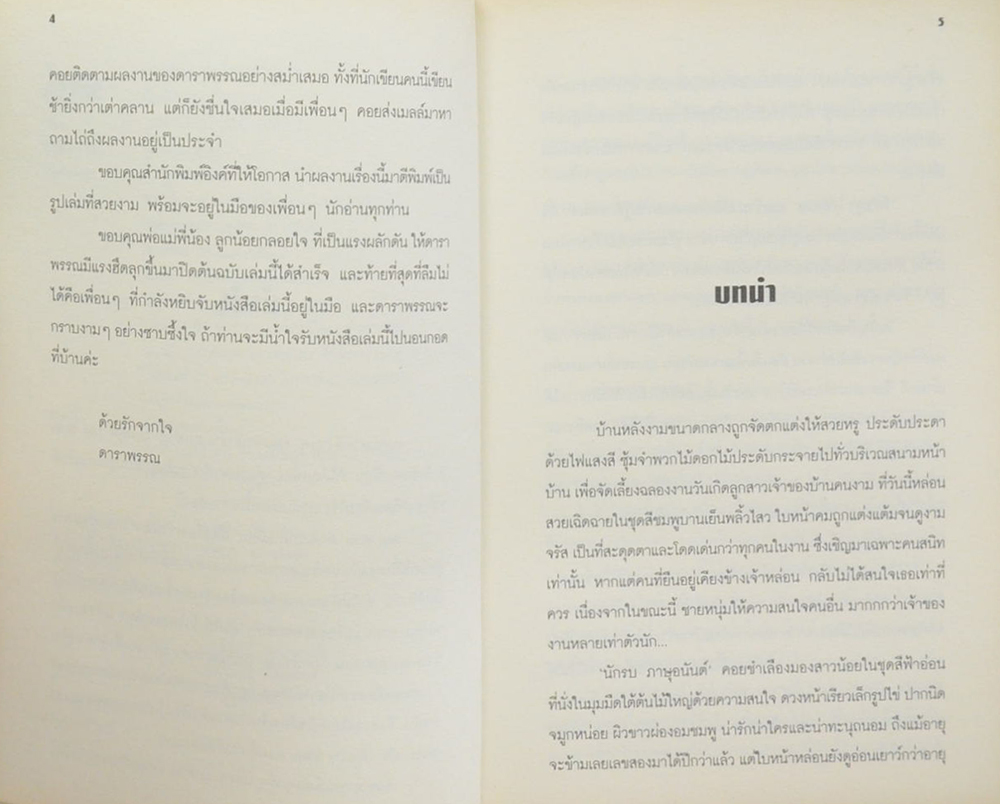 4
คอยติดตามผลงานของดาราพรรณอย่างสม่ำเสมอ ทั้งที่นักเขียนคนนี้เขียน
ช้ายิ่งกว่าเต่าคลาน แต่ก็ยังชื่นใจเสมอเมื่อมีเพื่อนๆ คอยส่งเมลล์มาหา
ถามไถ่ถึงผลงานอยู่เป็นประจำ
ขอบคุณสำนักพิมพ์อิงค์ที่ให้โอกาส นำผลงานเรื่องนี้มาตีพิมพ์เป็น
รูปเล่มที่สวยงาม พร้อมจะอยู่ในมือของเพื่อนๆ นักอ่านทุกท่าน
ขอบคุณพ่อแม่พี่น้อง ลูกน้อยกลอยใจ ที่เป็นแรงผลักดัน ให้ดารา
พรรณมีแรงฮึดลุกขึ้นมาปิดต้นฉบับเล่มนี้ได้สำเร็จ และท้ายที่สุดที่ลืมไม่
ได้คือเพื่อนๆ ที่กำลังหยิบจับหนังสือเล่มนี้อยู่ในมือ และดาราพรรณจะ
กราบงามๆ อย่างซาบซึ้งใจ ถ้าท่านจะมีน้ำใจรับหนังสือเล่มนี้ไปนอนกอด
ที่บ้านค่ะ
ด้วยรักจากใจ
ดาราพรรณ
5
บทนำ
บ้านหลังงามขนาดกลางถูกจัดตกแต่งให้สวยหรู ประดับประดา
ด้วยไฟแสงสี ซุ้มจำพวกไม้ดอกไม้ประดับกระจายไปทั่วบริเวณสนามหน้า
บ้าน เพื่อจัดเลี้ยงฉลองงานวันเกิดลูกสาวเจ้าของบ้านคนงาม ที่วันนี้หล่อน
สวยเฉิดฉายในชุดสีชมพูบานเย็นพลิ้วไสว ใบหน้าคมถูกแต่งแต้มจนดูงาม
จรัส เป็นที่สะดุดตาและโดดเด่นกว่าทุกคนในงาน ซึ่งเชิญมาเฉพาะคนสนิท
เท่านั้น หากแต่คนที่ยืนอยู่เคียงข้างเจ้าหล่อน กลับไม่ได้สนใจเธอเท่าที่
ควร เนื่องจากในขณะนี้ ชายหนุ่มให้ความสนใจคนอื่น มากกกว่าเจ้าของ
งานหลายเท่าตัวนัก...
'นักรบ ภาษุอนันต์' คอยชำเลืองมองสาวน้อยในชุดสีฟ้าอ่อน
ที่นั่งในมุมมืดใต้ต้นไม้ใหญ่ด้วยความสนใจ ดวงหน้าเรียวเล็กรูปไข่ ปากนิด
จมูกหน่อย ผิวขาวผ่องอมชมพู น่ารักน่าใคร่และน่าทะนุถนอม ถึงแม้อายุ
จะข้ามเลยเลขสองมาได้ปีกว่าแล้ว แต่ใบหน้าหล่อนยังดูอ่อนเยาว์กว่าอายุ